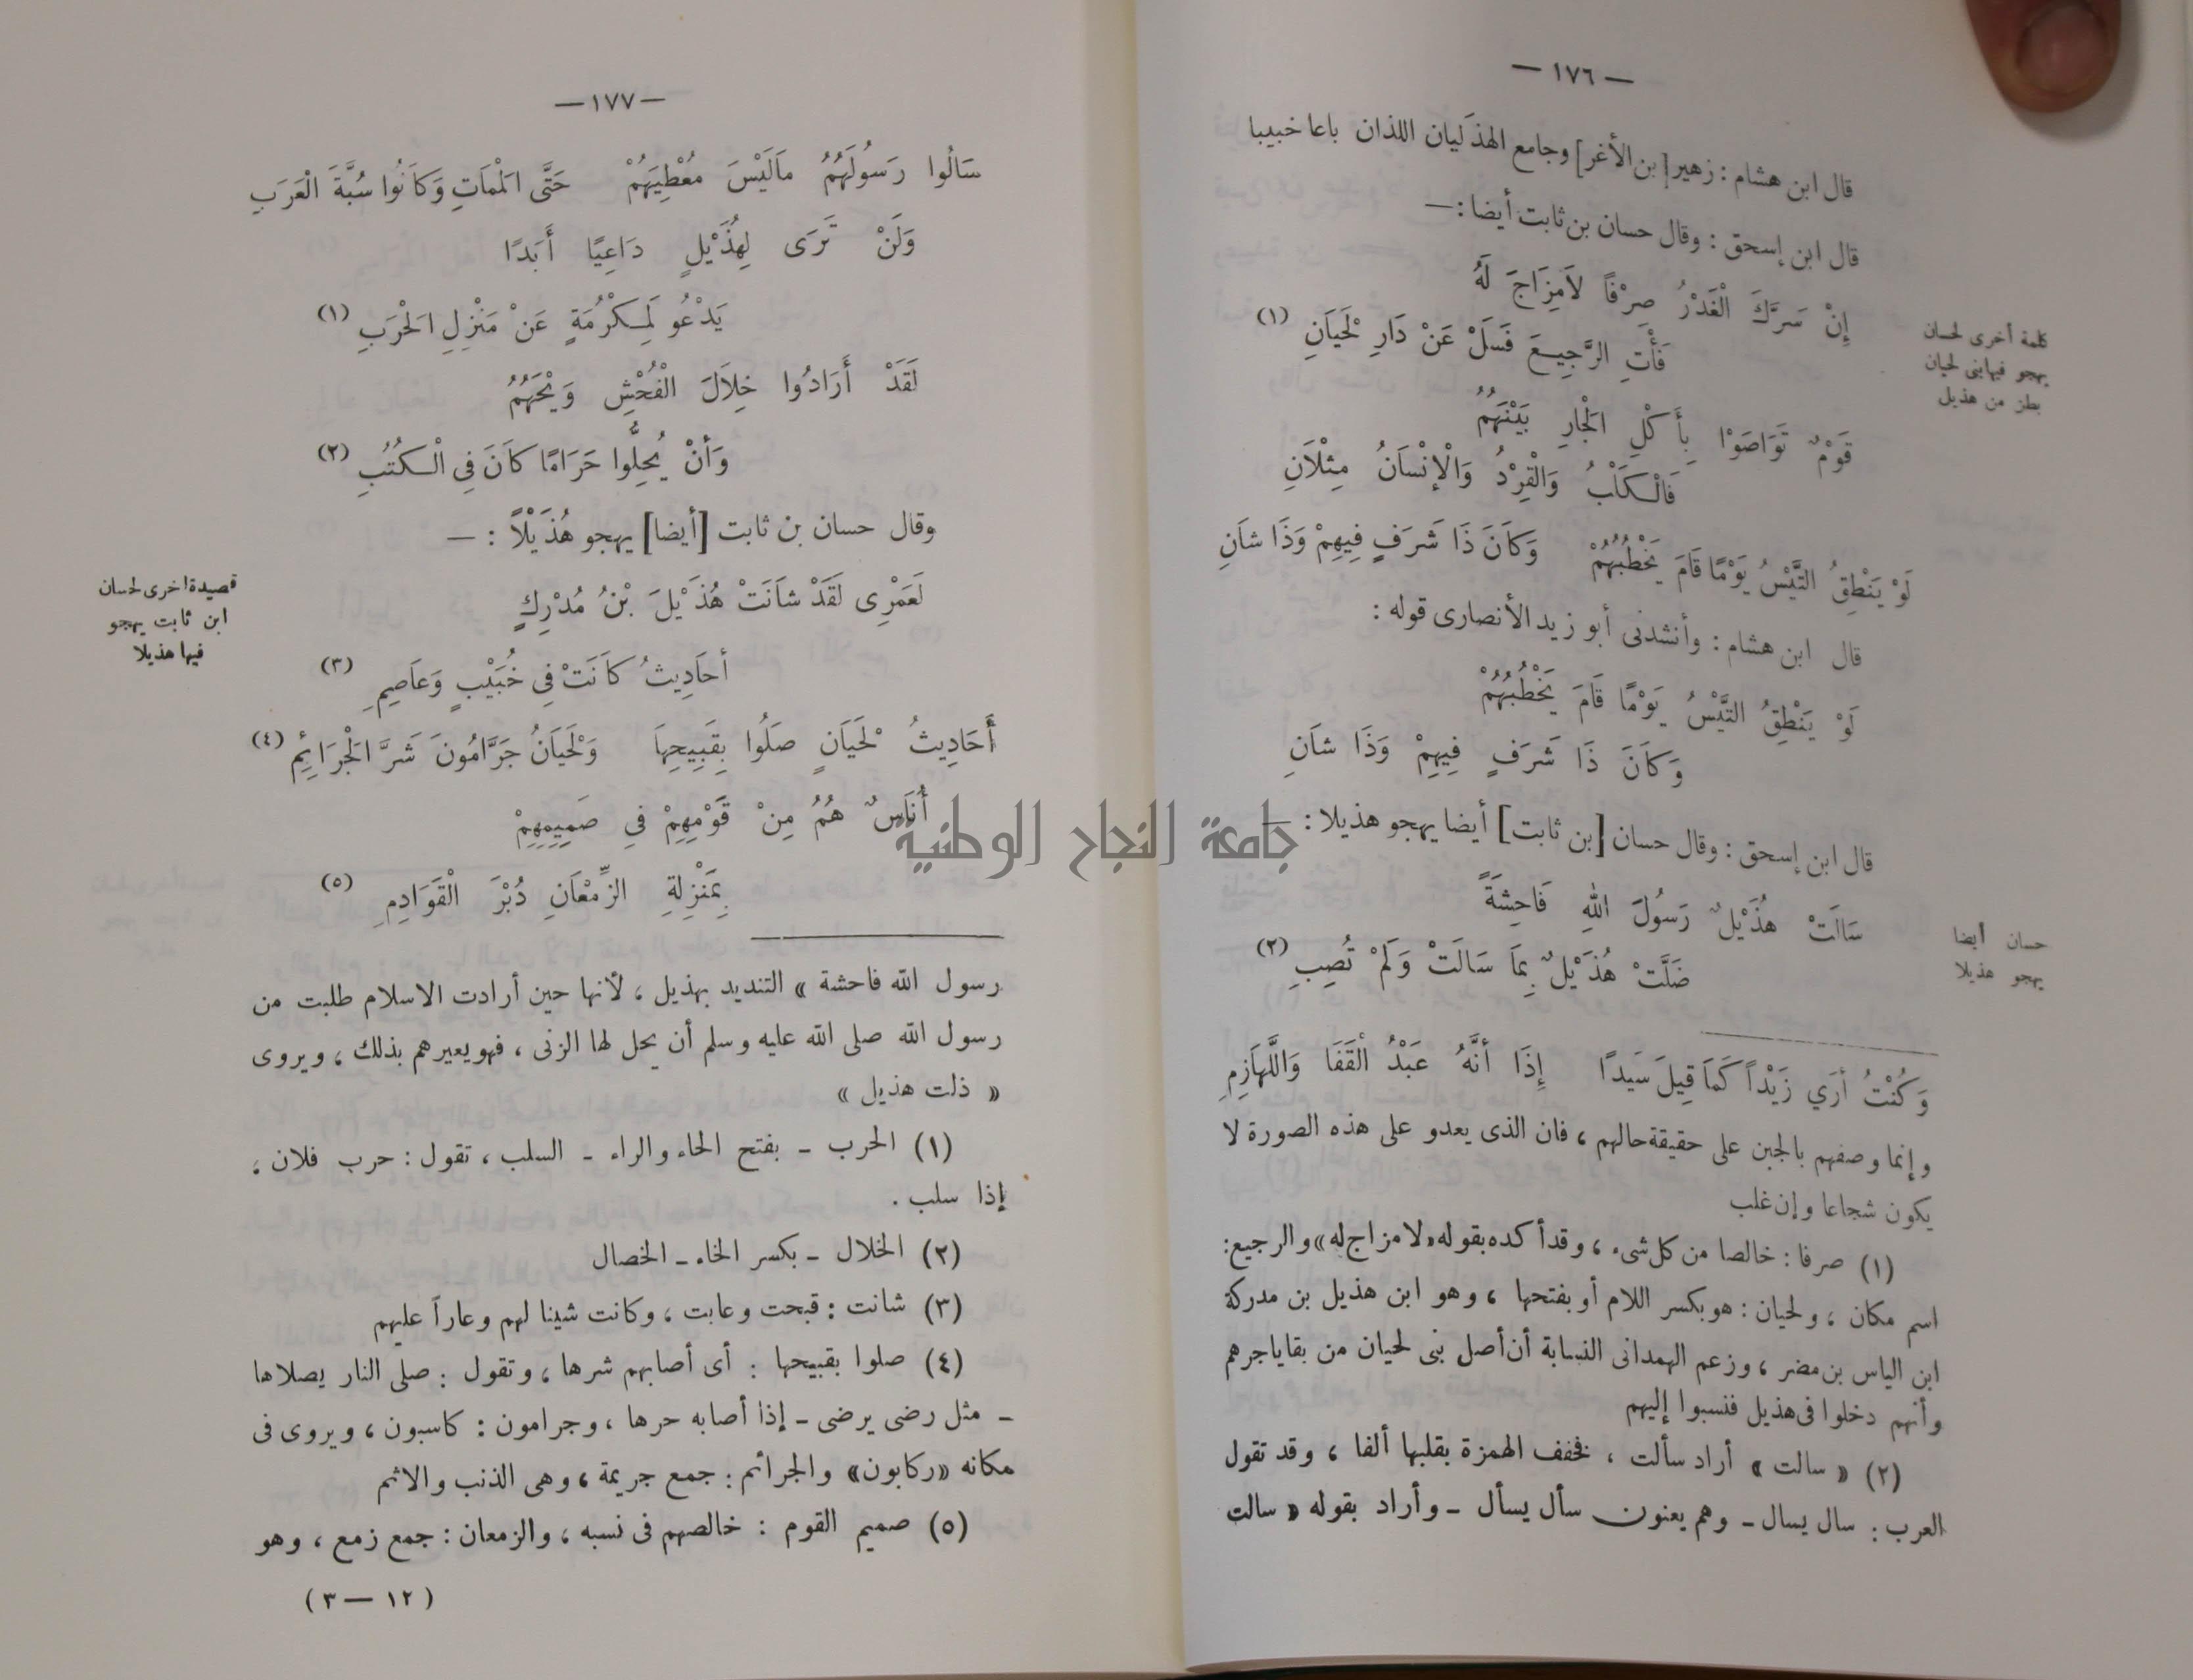 — ١٧٦ —
قال ابن هشام : زهير [بن الأغر] وجامع الهذليان اللذان باعا خبيبا
قال ابن إسحق : وقال حسان بن ثابت أيضا : —
إِنْ سَرَّكَ الْغَدْرُ صِرْفًا لاَمِزَاجَ لَهُ
فَأْتِ الرَّجِيعَ فَسَلْ عَنْ دَارِ لَحْيَانِ (١)
قَوْمٌ تَوَاصَوْا بِأَكْلِ الْجَارِ بَيْنَهُمُ
فَالْكَلْبُ وَالْقِرْدُ وَالْإنْسَانُ مِثْلاَنِ
لَوْ يَنْطِقُ التَّيْسُ يَوْمًا قَامَ يَخْطُبُهُمْ وَكَانَ ذَا شَرَفٍ فِيهِمْ وَذَا شَانِ
قال ابن هشام : وأنشدنى أبو زيد الأنصارى قوله :
لَوْ يَنْطِقُ التَّيْسُ يَوْمًا قَامَ يَخْطُبُهُمْ
وَكَانَ ذَا شَرَفٍ فِيهِمْ وَذَا شَانِ
قال ابن إسحق : وقال حسان [بن ثابت] أيضا يهجو هذيلا : —
سَالَتْ هُذَيْلٌ رَسُولَ اللهِ فَاحِشَةً
ضَلَّتْ هُذَيْلٌ بِمَا سَالَتْ وَلَمْ تُصِبِ (٢)
كلمة أخرى لحسان
يهجو فيها بنى لحيان
بطن من هذيل
حسان أيضا
يهجو هذيلا
وَكُنْتُ أرَي زَيْداً كَمَا قِيلَ سَيداً إِذَا أنَّهُ عَبْدُ الْقَفَا وَالَّلهَازِمِ
وإنما وصفهم بالجبن على حقيقة حالهم ، فان الذى يعدو على هذه الصورة لا
يكون شجاعا وإن غلب
(١) صرفا : خالصا من كل شىء ، وقد أكده بقوله «لا مزاج له» والرجيع :
اسم مكان ، ولحيان : هو بكسر اللام أو بفتحها ، وهو ابن هذيل بن مدركة
ابن الياس بن مضر ، وزعم الهمدانى النسابة أن أصل بنى لحيان من بقايا جرهم
وأنهم دخلوا فى هذيل فنسبوا إليهم
(٢) « سالت » أراد سألت ، فخفف الهمزة بقلبها ألفا ، وقد تقول
العرب : سال يسال - وهم يعنون سأل يسأل - وأراد بقوله « سالت
— ١٧٧ —
سَالُوا رَسُولَهُمُ مَالَيْسَ مُعْطِيَهُمْ حَتَّى الْمَمَاتِ وَكَانُوا سُبَّةَ الْعَرَبِ
وَلَنْ تَرَى لِهُذَيْلٍ دَاعِيًا أَبَدًا
يَدْعُو لِمَكْرُمَةٍ عَنْ مَنْزِلِ الْحَرَبِ (١)
لَقَدْ أَرَادُوا خِلاَلَ الْفُحْشِ وَيْحَهُمُ
وَأنْ يُحِلُّوا حَرَامًا كَانَ فِى الْكُتُبِ (٢)
وقال حسان بن ثابت [أيضا] يهجو هُذَيْلاً : —
لَعَمْرِى لَقَدْ شَانَتْ هُذَيْلَ بْنُ مُدْرِكٍ
أحَادِيثُ كَانَتْ فِى خُبَيْبٍ وَعَاصِمِ (٣)
أَحَادِيثُ لَحْيَانٍ صَلُوا بِقَبِيحِهَا وَلَحْيَانُ جَرَّامُونَ شَرَّ الْجَرَائِمِ (٤)
أُنَاسٌ هُمُ مِنْ قَوْمِهِمْ فِي صَمِيمِهِمْ
بِمَنْزِلَةِ الزِّمْعَانِ دُبْرَ الْقَوَادِمِ (٥)
قصيدة اخرى لحسان
ابن ثابت يهجو
فيها هذيلا
رسول الله فاحشة » التنديد بهذيل ، لأنها حين أرادت الاسلام طلبت من
رسول الله صلى الله عليه وسلم أن يحل لها الزنى ، فهو يعيرهم بذلك ، ويروى
« ذلت هذيل »
(١) الحرب - بفتح الحاء والراء - السلب ، تقول : حرب فلان ،
إذا سلب .
(٢) الخلال - بكسر الخاء - الخصال
(٣) شانت : قبحت وعابت ، وكانت شينا لهم وعاراً عليهم
(٤) صلوا بقبيحها : أى أصابهم شرها ، وتقول : صلى النار يصلاها
- مثل رضى يرضى - إذا أصابه حرها ، وجرامون : كاسبون ، ويروى فى
مكانه «ركابون» والجرائم : جمع جريمة ، وهى الذنب والاثم
(٥) صميم القوم : خالصهم فى نسبه ، والزمعان : جمع زمع ، وهو
( ١٢ — ٣ )
جامعة النجاح الوطنية